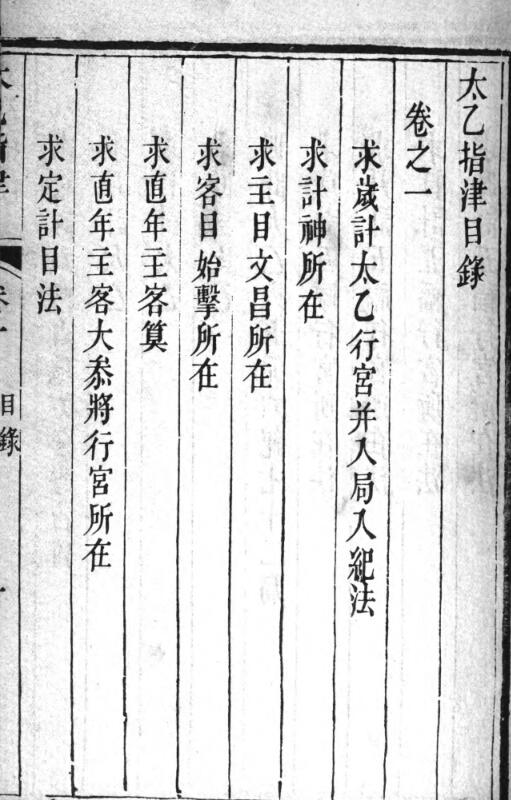 太乙指津目錄
卷之一
求歲計太乙行宮并入局入紀法
求計神所在
求主目文昌所在
求客目始擊所在
求直年主客筭
求直年主客大叅將行宮所在
求定計目法
目錄